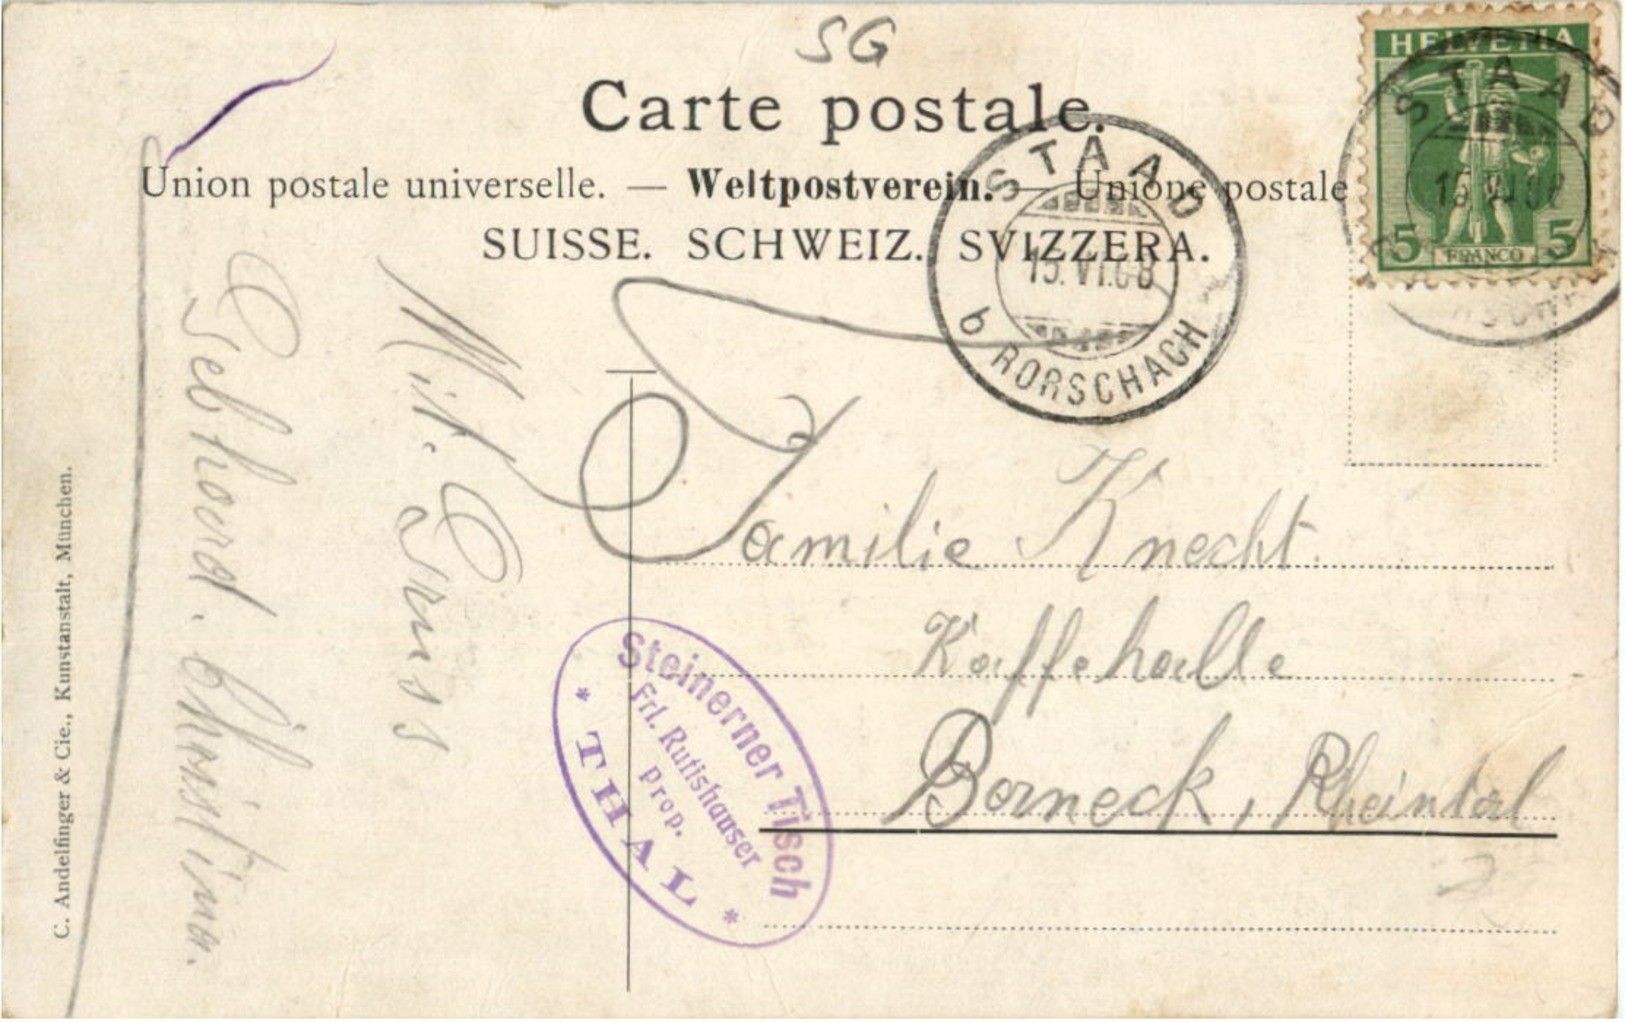 SG
Carte postale.
Union postale universelle. — Weltpostverein. — Unione postale
SUISSE. SCHWEIZ. SVIZZERA.
HELVETIA
5 FRANCO 5
STAAD
15.VI.08
STAAD
15.VI.08
b RORSCHACH
Mit. Gruss
Gebhard. Christina.
Familie Knecht.
Kaffehalle
Berneck, Rheintal
Steinerner Tisch
Frl. Rutishauser
Prop.
* THAL *
C. Andelfinger & Cie., Kunstanstalt, München.